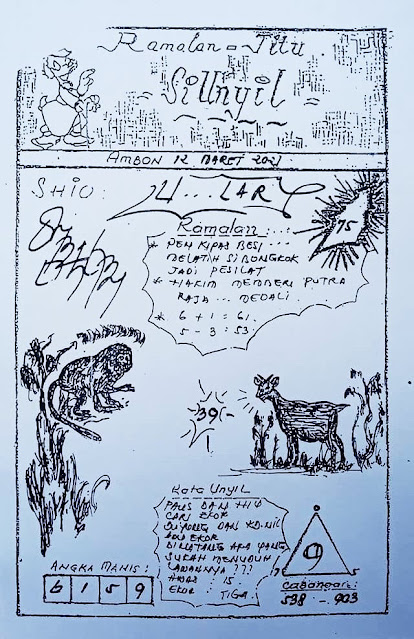 Ramalan = Jitu
SiUnyil
AMBON 12 MARET 2021
SHIO:
14... LARY
75
Ramalan:
* PEN KIPAS BESI ...
MELATIH SI BONGKOK
JADI PESILAT
* HAKIM MEMBERI PUTRA
RAJA ... MEDALI.
* 6 + 1 = 61.
5 - 3 = 53.
39/-
Kata Unyil
PAUS DAN HIU
CARI EKOR
DAN
ADU EKOR
BINATANG APA YANG
SUKAH MENUDUH
LAWANNYA ???
: 15.
EKOR : TIGA.
ANGKA MANIS:
6 1 5 9
9
5
Cabangan:
538 - 903